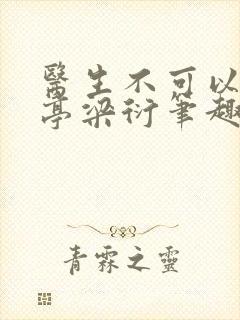 醫生不可以
亭梁衍筆趣
青霖之靈